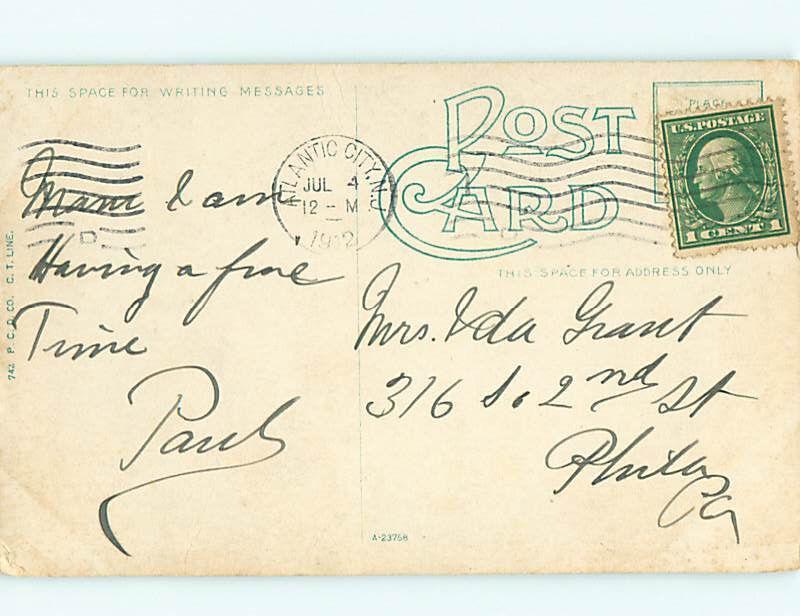 THIS SPACE FOR WRITING MESSAGES
POST CARD
PLACE
U.S. POSTAGE
1 CENT 1
ATLANTIC CITY, N.J.
JUL 4
12 - M
1912
THIS SPACE FOR ADDRESS ONLY
Mam I am
Having a fine
Time
Paul
Mrs. Ida Grant
316 So. 2nd St
Phila
Pa
742 P. C. D. CO. C. T. LINE.
A-23758